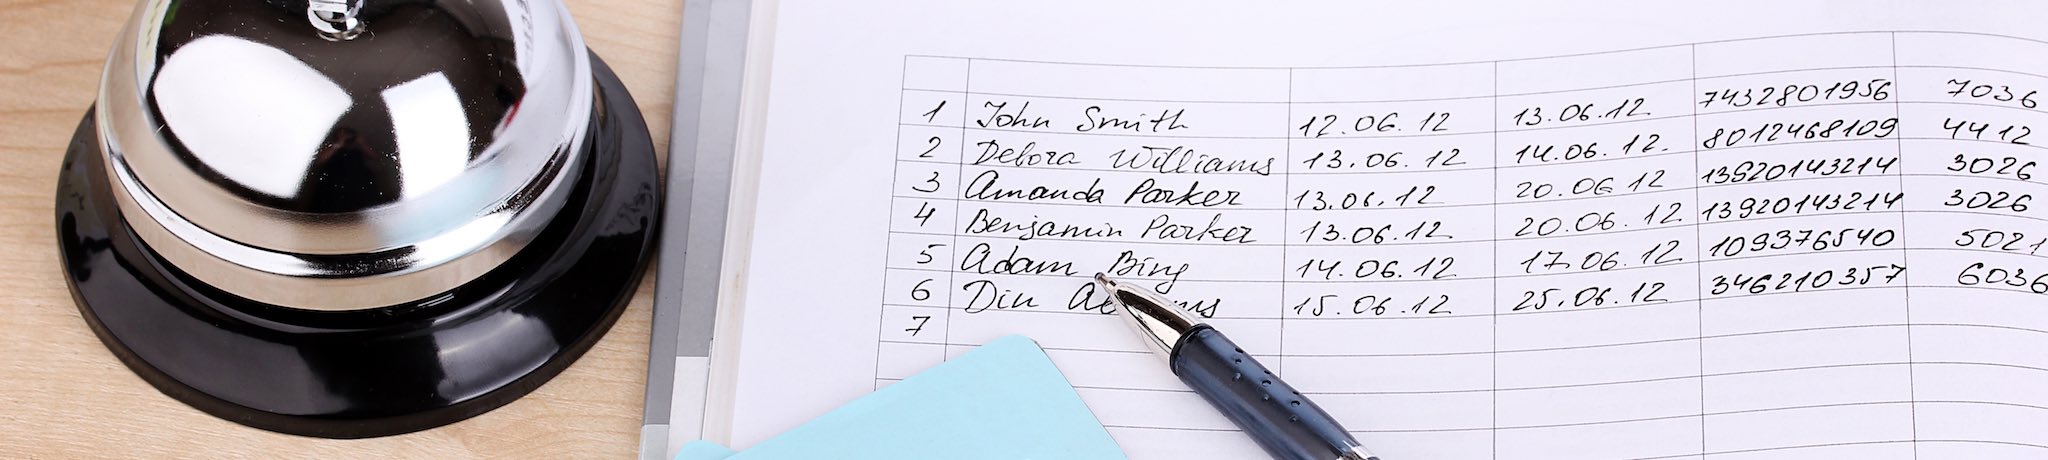 1 John Smith 12.06.12 13.06.12 7432801956 7036
2 Debora Williams 13.06.12 14.06.12. 8012468109 4412
3 Amanda Parker 13.06.12 20.06 12 13920143214 3026
4 Benjamin Parker 13.06.12. 20.06.12. 13920143214 3026
5 Adam Bing 14.06.12 17.06.12 109376540 5021
6 Din 15.06.12 25.06.12 346210357 6036
7